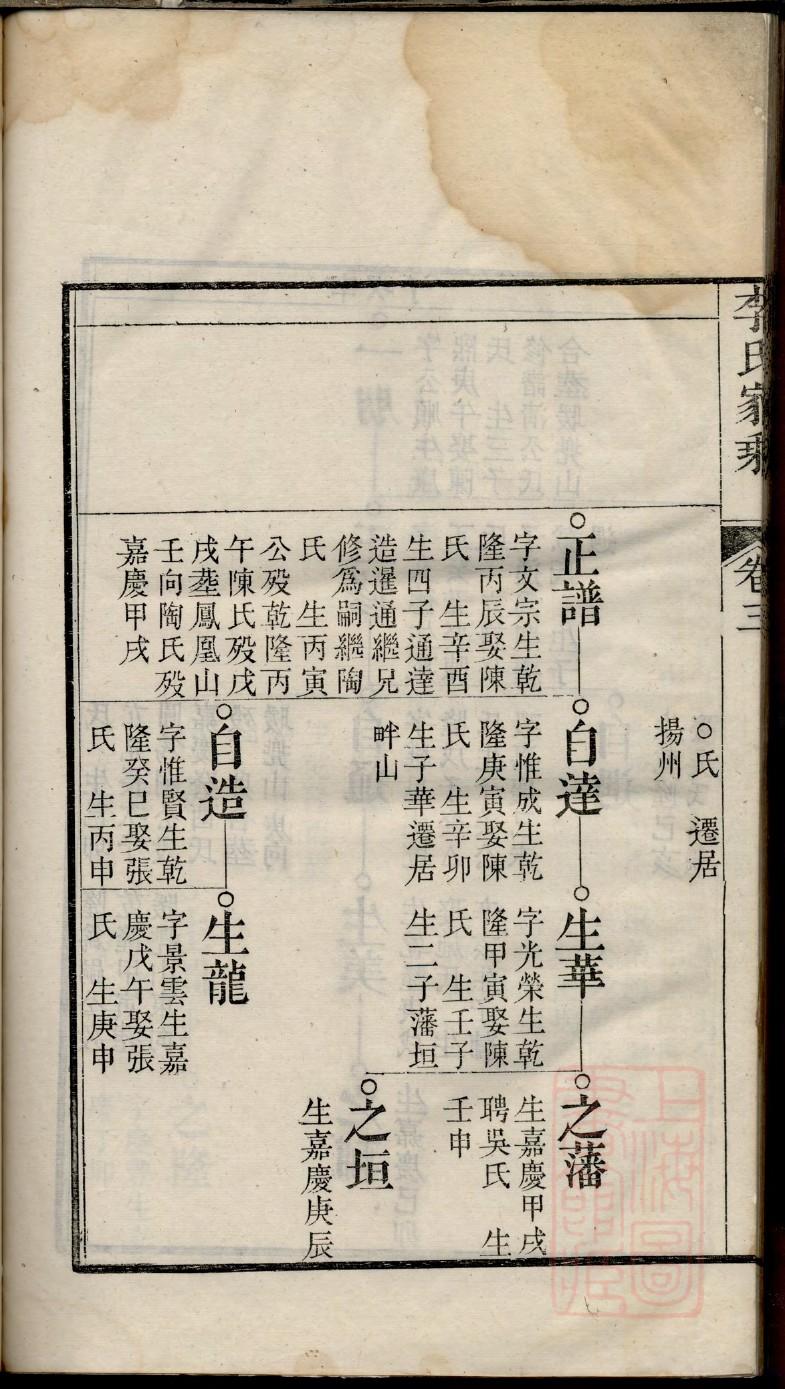 李氏家乘
卷三
○氏 遷居
揚州
○正譜
字文宗生乾
隆丙辰娶陳
氏 生辛酉
生四子通達
造暹通繼兄
修爲嗣繼陶
氏 生丙寅
公殁乾隆丙
午陳氏殁戊
戌塟鳳凰山
壬向陶氏殁
嘉慶甲戌
○自達
字惟成生乾
隆庚寅娶陳
氏 生辛卯
生子華遷居
畔山
○自造
字惟賢生乾
隆癸巳娶張
氏 生丙申
○生華
字光榮生乾
隆甲寅娶陳
氏 生壬子
生二子藩垣
○生龍
字景雲生嘉
慶戊午娶張
氏 生庚申
○之藩
生嘉慶甲戌
聘吳氏 生
壬申
○之垣
生嘉慶庚辰
上海圖